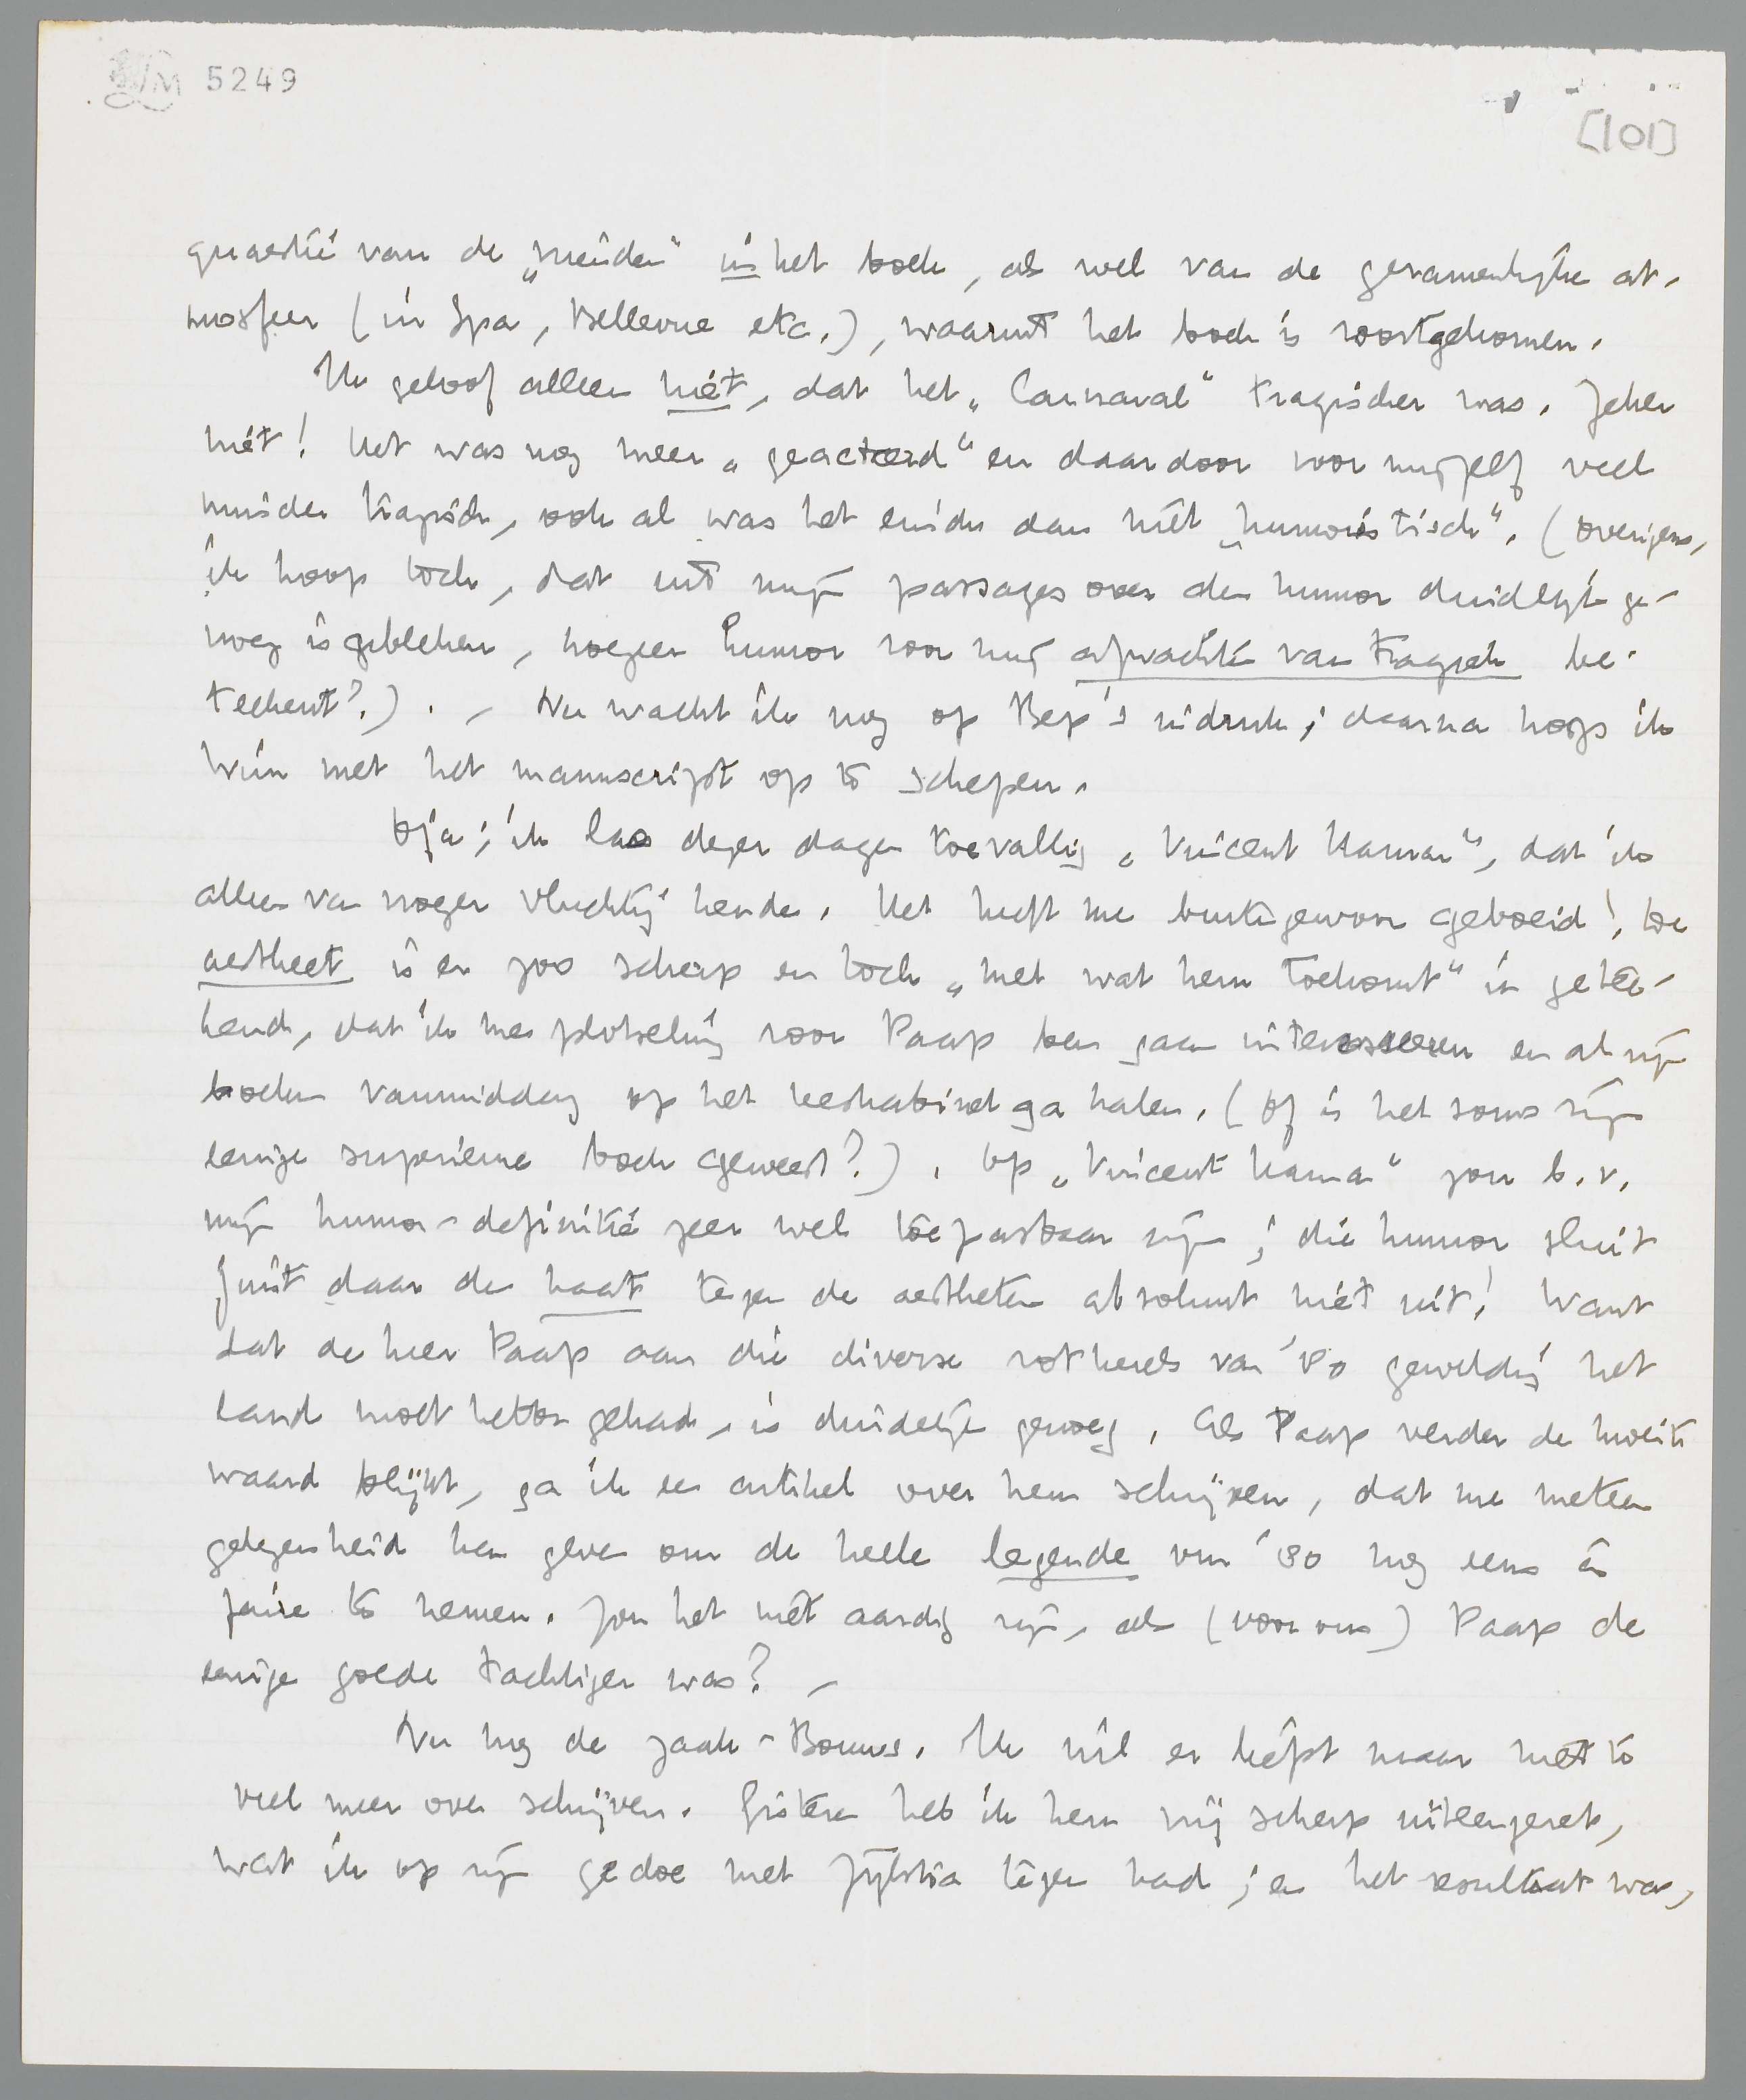 LM 5249
[101]
quaestie van de „vrienden” in het boek, als wel van de gezamenlijke at-
mosfeer (in Spa, Bellevue etc.), waaruit het boek is voortgekomen.
Ik geloof alleen niet, dat het „Carnaval” tragischer was. Zeker
niet! Het was nog meer „geacteerd” en daardoor voor mijzelf veel
minder tragisch, ook al was het einde dan niet „humoristisch”. (Overigens,
ik hoop toch, dat uit mijn passages over den humor duidelijk ge-
noeg is gebleken, hoezeer humor voor mij afwachten van tragiek be-
teekent?). – Nu wacht ik nog op Bep's indruk; daarna hoop ik
Wim met het manuscript op te schepen.
O ja; ik las dezer dagen toevallig „Vincent Haman”, dat ik
alleen van vroeger vluchtig kende. Het heeft me buitengewoon geboeid! De
aestheet is er zoo scherp en toch „met wat hem toekomt” in getee-
kend, dat ik me plotseling voor Paap ben gaan interesseeren en al zijn
boeken vanmiddag op het leeskabinet ga halen. (Of is het soms zijn
eenige superieure boek geweest?). Op „Vincent Haman” zou b.v.
mijn humor-definitie zeer wel toepasbaar zijn; die humor sluit
juist daar de haat tegen de aestheten absoluut niet uit! Want
dat de heer Paap aan die diverse rotkerels van '80 geweldig het
land moet hebben gehad, is duidelijk genoeg. Als Paap verder de moeite
waard blijkt, ga ik een artikel over hem schrijven, dat me meteen
gelegenheid kan geven om de heele legende van '80 nog eens à
faire te nemen. Zou het niet aardig zijn, als (voor ons) Paap de
eenige goede tachtiger was? –
Nu nog de zaak-Bouws. Ik wil er liefst maar niet te
veel meer over schrijven. Gisteren heb ik hem vrij scherp uiteengezet,
wat ik op zijn gedoe met Zijlstra tegen had; en het resultaat was,